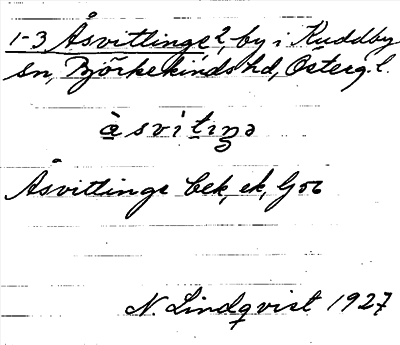 1-3 Åsvittinge², by i Kuddby
sn, Björkekinds hd, Österg. l.
Åsvittinge bek, ek, G 56
N. Lindqvist 1927